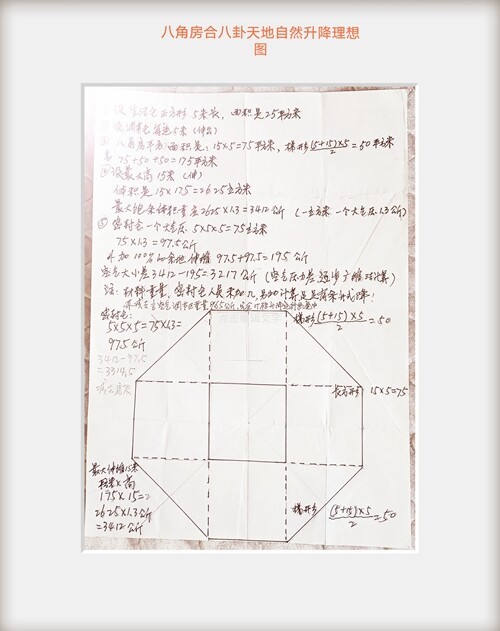 八角房合八卦天地自然升降理想
图
正方形 5米长，面积是25平方米
调节仓每边5米（伸出）
八角房平方面积是：15×5=75平方米，梯形(5+15)×5/2=50平方米
75+50+50=175平方米
最大高15米（伸）
体积是15×175=2625立方米
最大饱余体积重量2625×1.3=3412公斤（一立方米一个大气压1.3公斤）
⑤密封仓一个大气压5×5×5=75立方米
75×1.3=97.5公斤
外加100%的余地伸缩97.5+97.5=195公斤
空气大小差3412-195=3217公斤（空气压力差逐步广推计算）
注：材料重量，密封仓人员未加入，另加计算足足有余升成功率！
密封仓：
5×5×5=75×1.3=
97.5公斤
3412-97.5
=3314.5
梯形(5+15)×5/2=50
长方形 15×5=75
最大伸缩15米
×高
175×15=2
2625×1.3公斤
=3412公斤
梯形 (5+15)×5/2=50